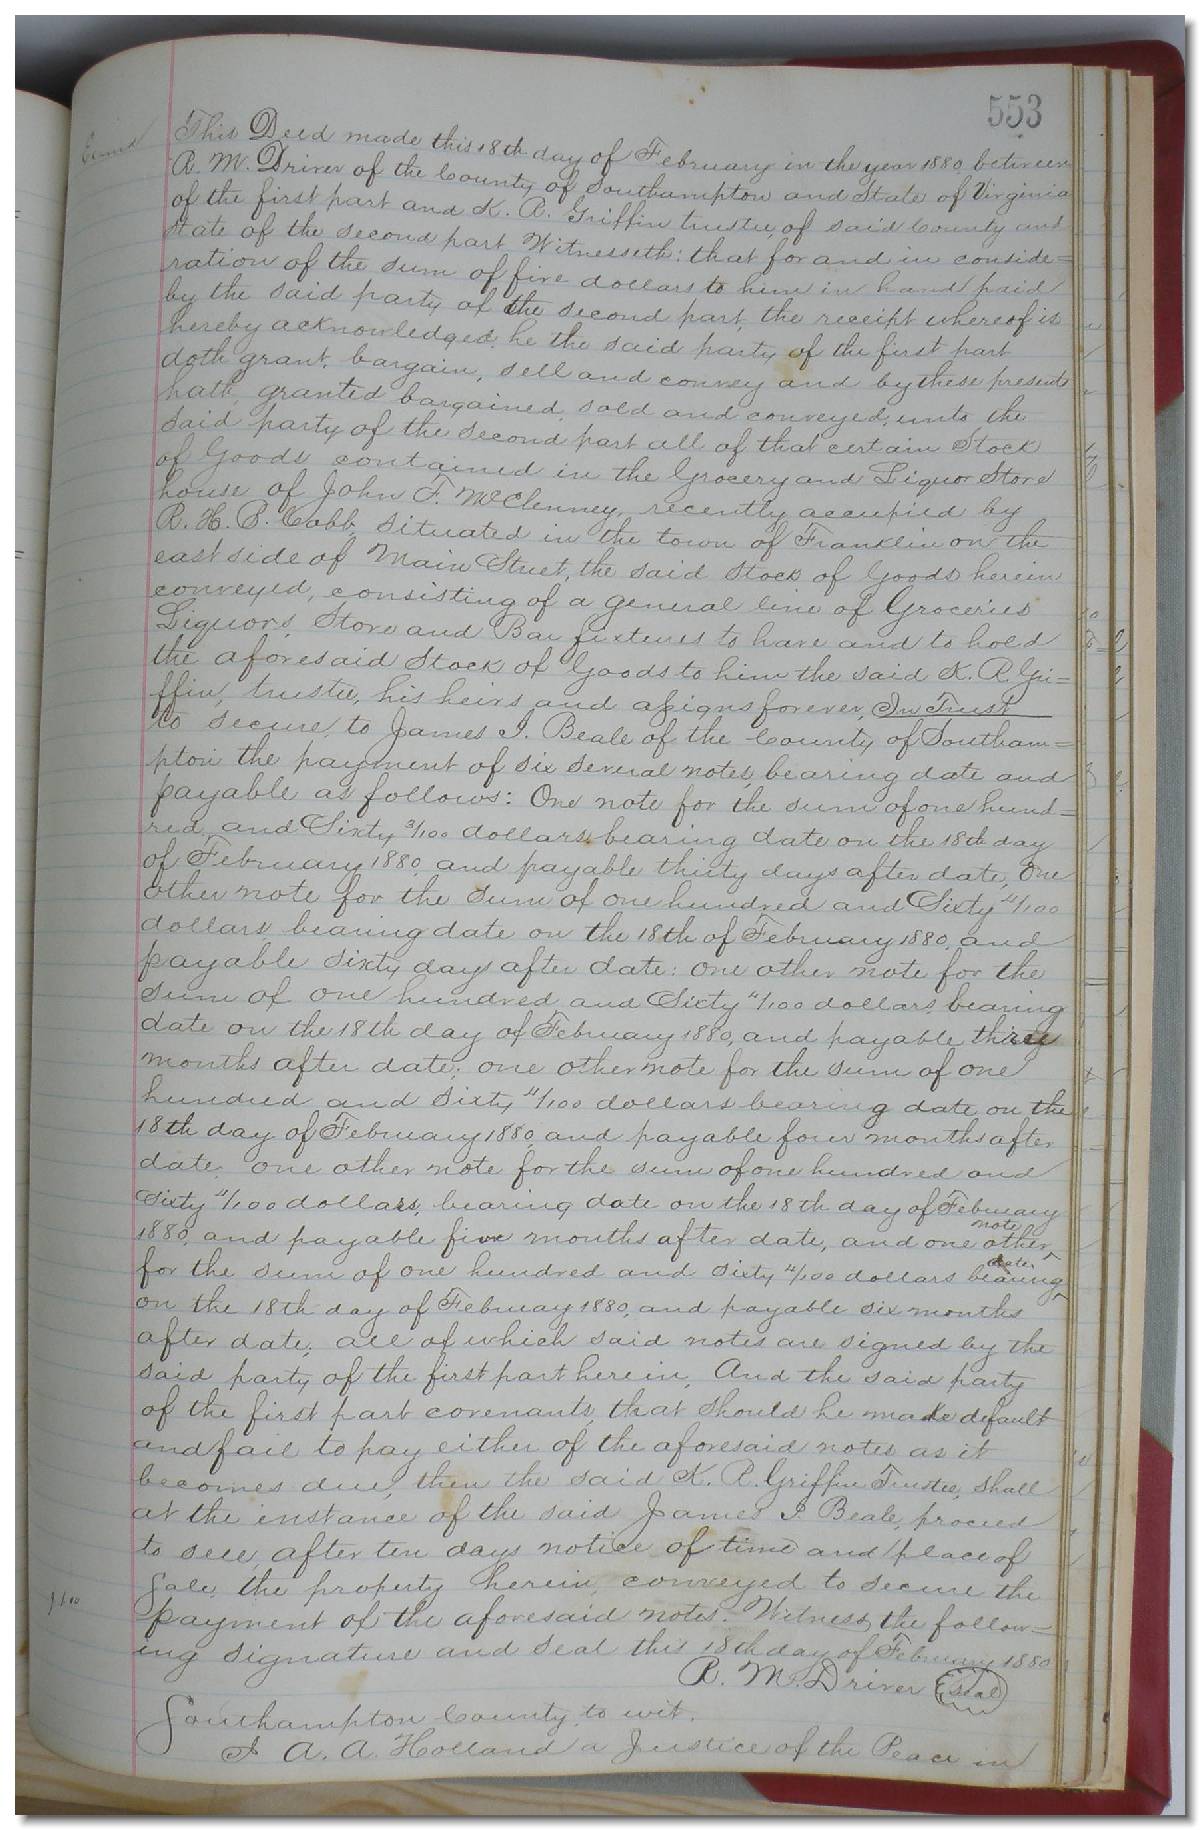 553
Exmd
This Deed made this 18th day of February in the year 1880, between
R. M. Driver of the County of Southampton and State of Virginia
of the first part and K. R. Griffin trustee, of said County and
State of the second part Witnesseth: that for and in conside=
ration of the sum of five dollars to him in hand paid
by the said party of the second part, the receipt whereof is
hereby acknowledged, he the said party of the first part
doth grant, bargain, sell and convey and by these presents
hath, granted bargained, sold and conveyed, unto the
said party of the second part all of that certain Stock
of Goods contained in the Grocery and Liquor Store
house of John F. McClenney, recently occupied by
R. H. S. Cobb, situated in the town of Franklin on the
east side of Main Street, the said Stock of Goods herein
conveyed, consisting of a general line of Groceries
Liquors, Store and Bar fixtures to have and to hold
the aforesaid Stock of Goods to him the said K. R. Gri=
ffin, trustee, his heirs and assigns forever, In Trust
to secure, to James I. Beale of the County of Southam=
pton the payment of six several notes, bearing date and
payable as follows: One note for the sum of one hund=
red and Sixty 3/100 dollars bearing date on the 18th day
of February 1880, and payable thirty days after date, One
other note for the sum of one hundred and Sixty 4/100
dollars, bearing date on the 18th of February 1880, and
payable sixty days after date: one other note for the
sum of one hundred and Sixty 4/100 dollars, bearing
date on the 18th day of February 1880, and payable three
months after date; one other note for the sum of one
hundred and sixty 4/100 dollars bearing date on the
18th day of February 1880, and payable four months after
date. one other note for the sum of one hundred and
Sixty 4/100 dollars, bearing date on the 18th day of February
1880, and payable five months after date, and one other ^ note
for the sum of one hundred and sixty 4/100 dollars bearing ^ date
on the 18th day of Februay 1880, and payable six months
after date, all of which said notes are signed by the
said party of the first part herein, And the said party
of the first part covenants, that should he make default
and fail to pay either of the aforesaid notes as it
becomes due, then the said K. R. Griffin Trustee, shall
at the instance of the said James I. Beale, proceed
to sell, after ten days notice of time and place of
Sale, the property herein, conveyed to secure the
payment of the aforesaid notes. Witness, the follow=
ing signature and seal this 18th day of February 1880
R. M. Driver (seal)
Southampton County, to wit.
I A. A. Holland a Justice of the Peace in